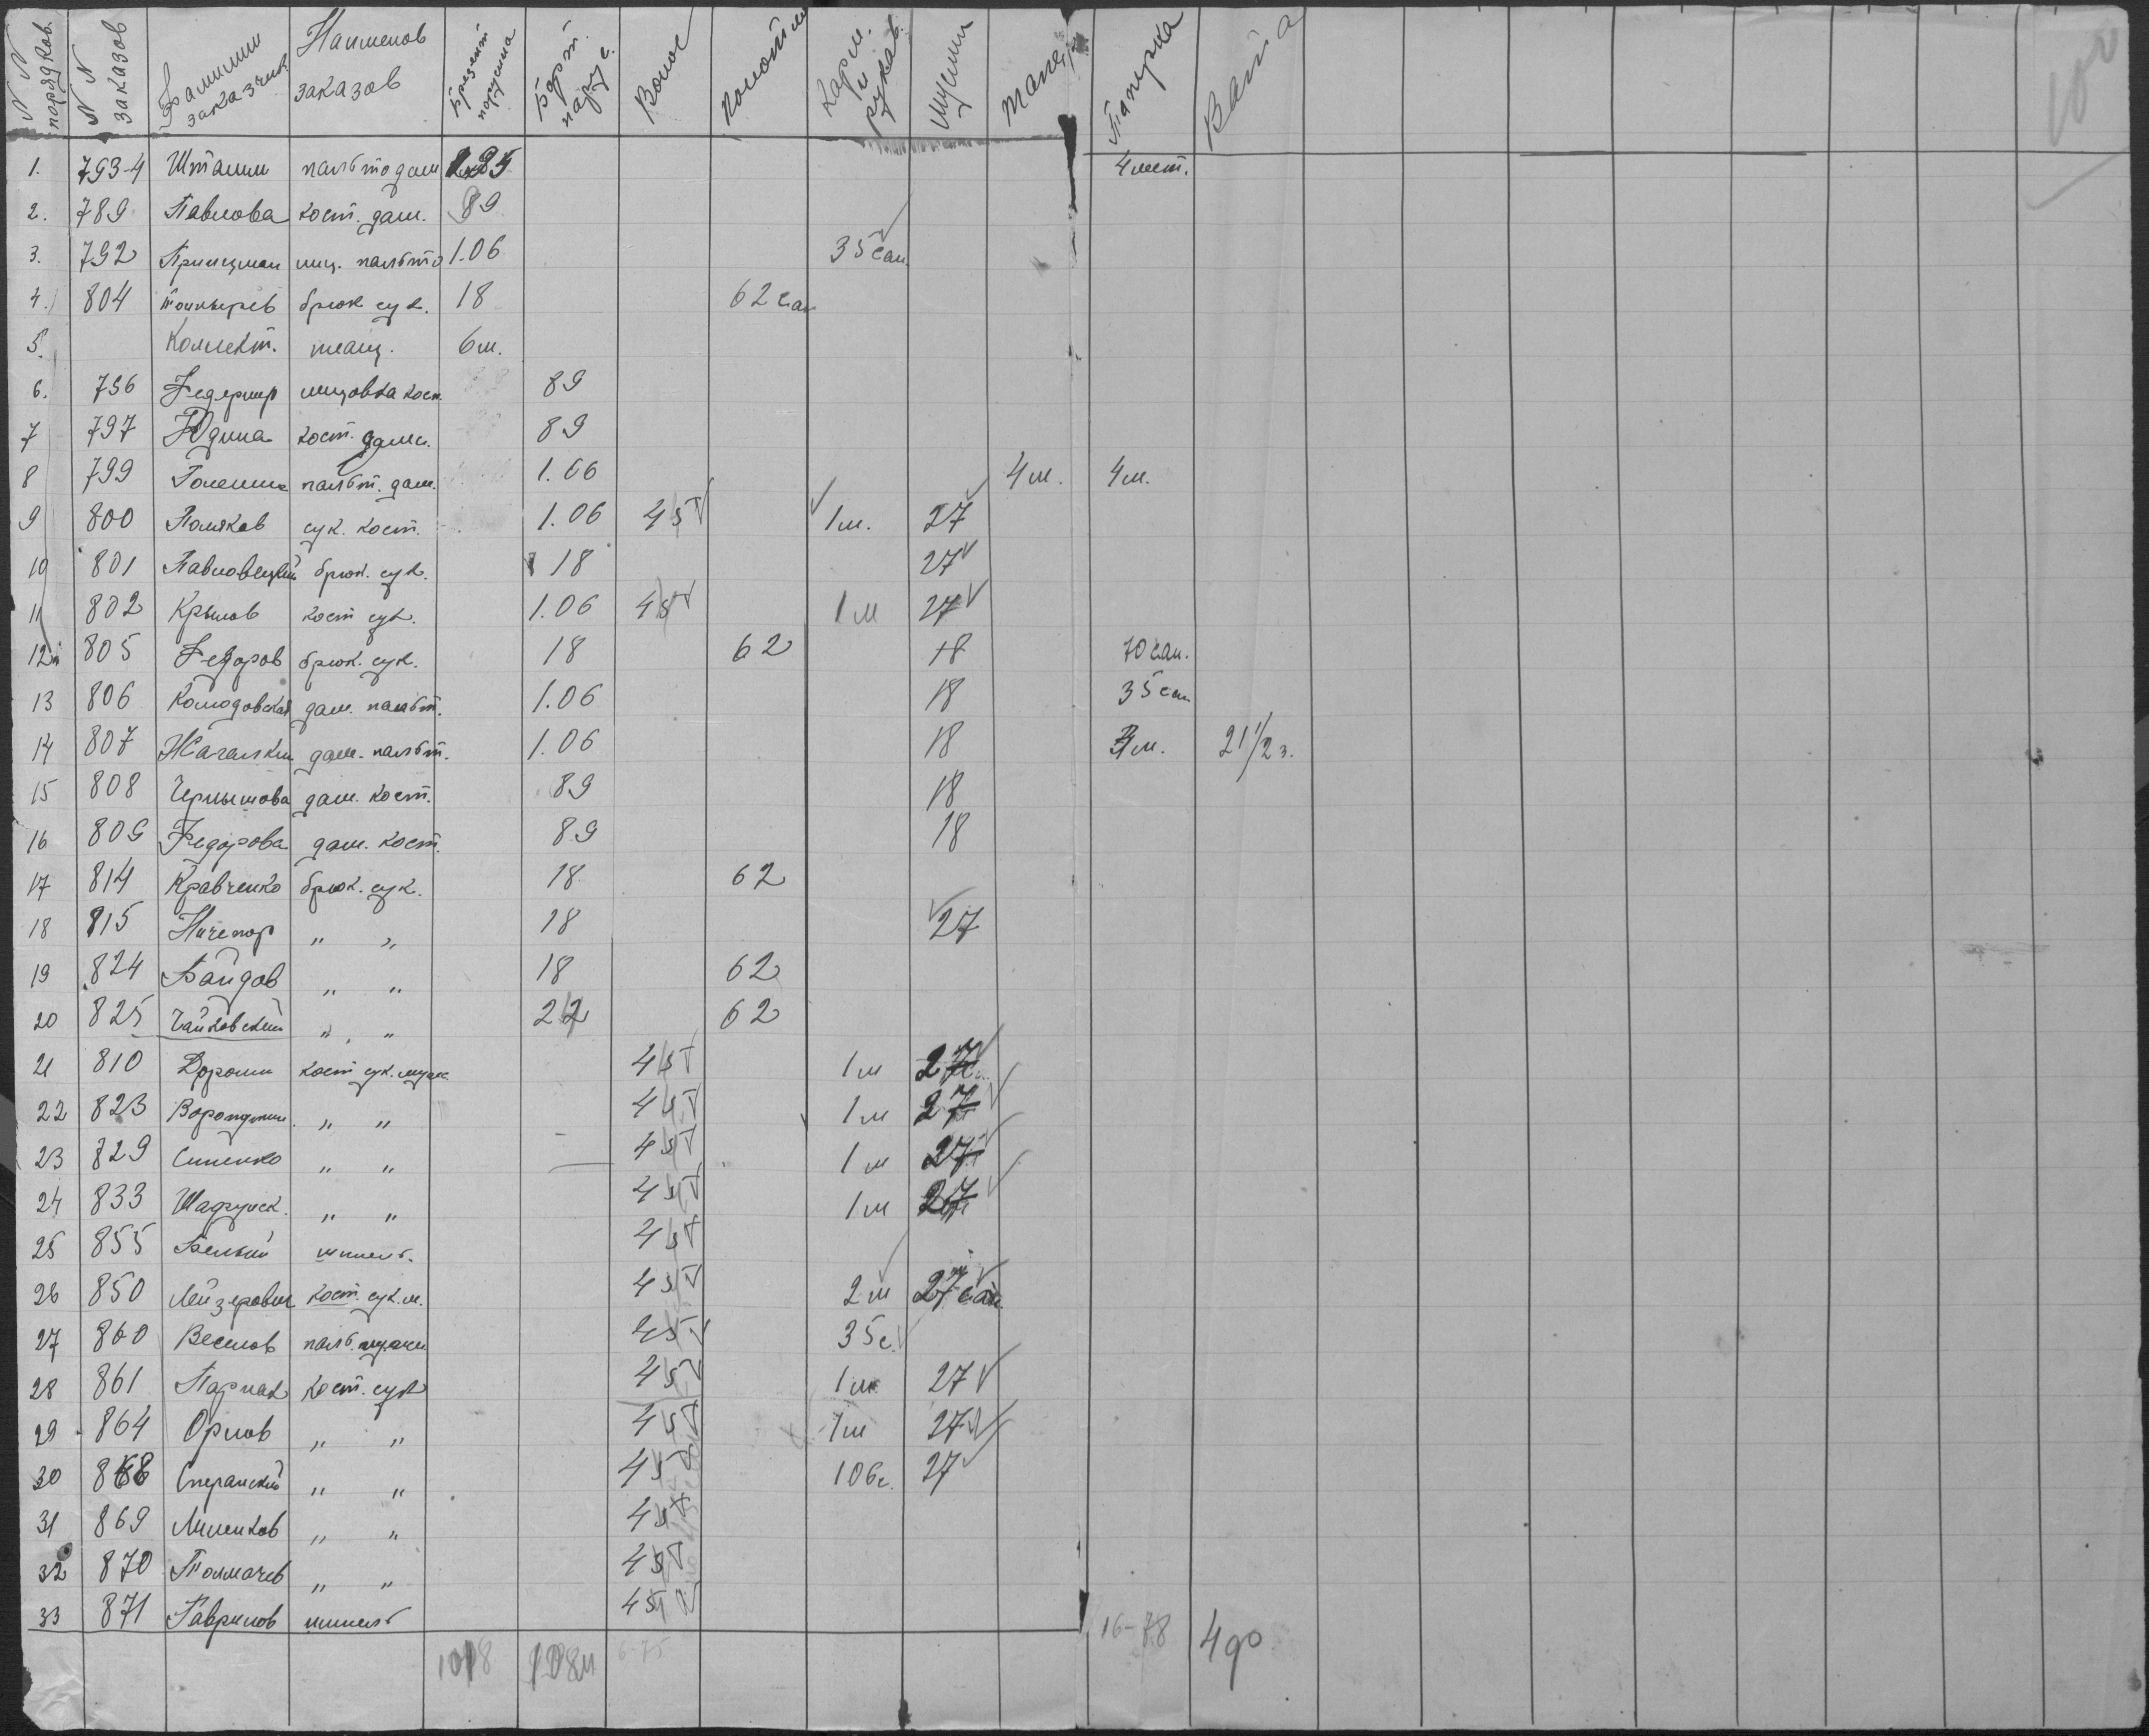 N N порядков. N N заказов Фамилии заказчик Наименов заказов Брезент парусина Борт. парус. Волос полотн Карм. и рукав. Ватта
100
1. 793-4 Штамм пальто дам 4 мет.
2. 789 Павлова кост. дам. 89
3. 792 лиц. пальто 1.06 35 сан.
4. 804 брюк сук. 18 62 сан
5. Коллект. 6 м.
6. 796 лицовка кост. 89
7 797 Юдина кост. дамс. 89
8 799 пальт. дам. 1.06 4 м. 4 м.
9 800 Поляков сук. кост. 1.06 45 1 м. 27
10 801 Павловецкий брюк. сук. 18 27
11 802 Крылов кост сук. 1.06 45 1 м 27
12 805 Федоров брюк. сук. 18 62 18 70 сан.
13 806 Колодовская дам. пальт. 1.06 18 35 сан
14 807 дам. пальт. 1.06 18 м. 21 1/2 з.
15 808 Чернышова дам. кост. 89 18
16 809 Федорова дам. кост. 89 18
17 814 Кравченко брюк. сук. 18 62
18 815 Ничепор " " 18 27
19 824 Байдов " " 18 62
20 825 Чайковский " " 22 62
21 810 Доронин кост сук. мужс. 45 1 м 27
22 823 " " 45 1 м 27
23 829 Синенко " " 45 1 м 27
24 833 " " 45 1 м 27
25 855 Белый шинель. 45
26 850 Лейзерович кост. сук. м. 45 2 м 27 сан
27 860 Веселов пальт. 45 35 с.
28 861 Парнак кост. сук 45 1 м 27
29 864 Орлов " " 45 1 м 27
30 868 Сперанский " " 45 106 с. 27
31 869 Миленков " " 45
32 870 Толмачев " " 45
33 871 Гаврилов шинель 45
6-75 16-78 4 90